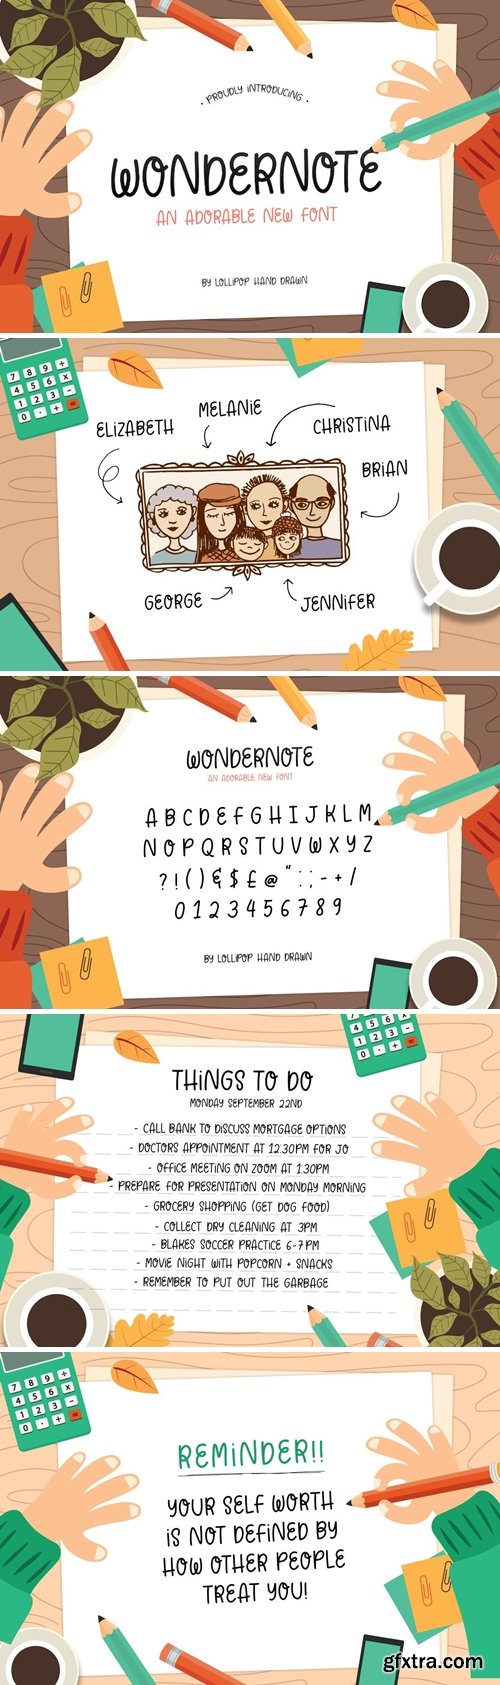 · PROUDLY INTRODUCING ·
WONDERNOTE
AN ADORABLE NEW FONT
BY LOLLIPOP HAND DRAWN
7 8 9 ÷
4 5 6 x
1 2 3 -
0 · + =
ELIZABETH
MELANIE
CHRISTINA
BRIAN
GEORGE
JENNIFER
WONDERNOTE
AN ADORABLE NEW FONT
A B C D E F G H I J K L M
N O P Q R S T U V W X Y Z
? ! ( ) & $ £ @ " : ; - + /
0 1 2 3 4 5 6 7 8 9
BY LOLLIPOP HAND DRAWN
7 8 9 ÷
4 5 6 x
1 2 3 -
0 · + =
THINGS TO DO
MONDAY SEPTEMBER 22ND
- CALL BANK TO DISCUSS MORTGAGE OPTIONS
- DOCTORS APPOINTMENT AT 12:30PM FOR JO
- OFFICE MEETING ON ZOOM AT 1:30PM
- PREPARE FOR PRESENTATION ON MONDAY MORNING
- GROCERY SHOPPING (GET DOG FOOD)
- COLLECT DRY CLEANING AT 3PM
- BLAKES SOCCER PRACTICE 6-7PM
- MOVIE NIGHT WITH POPCORN + SNACKS
- REMEMBER TO PUT OUT THE GARBAGE
7 8 9 ÷
4 5 6 x
1 2 3 -
0 · + =
REMINDER!!
YOUR SELF WORTH
IS NOT DEFINED BY
HOW OTHER PEOPLE
TREAT YOU!
gfxtra.com